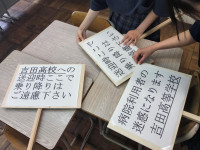 吉田高校への
送迎時ここで
乗り降りは
ご遠慮下さい
病院利用者の
迷惑になります
吉田高等学校